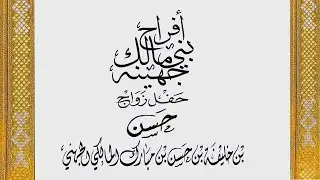 أفراح
بني مالك
جهينه
حفل زواج
حسن
بن خليفة بن حسن بن مبارك المالكي الجهني